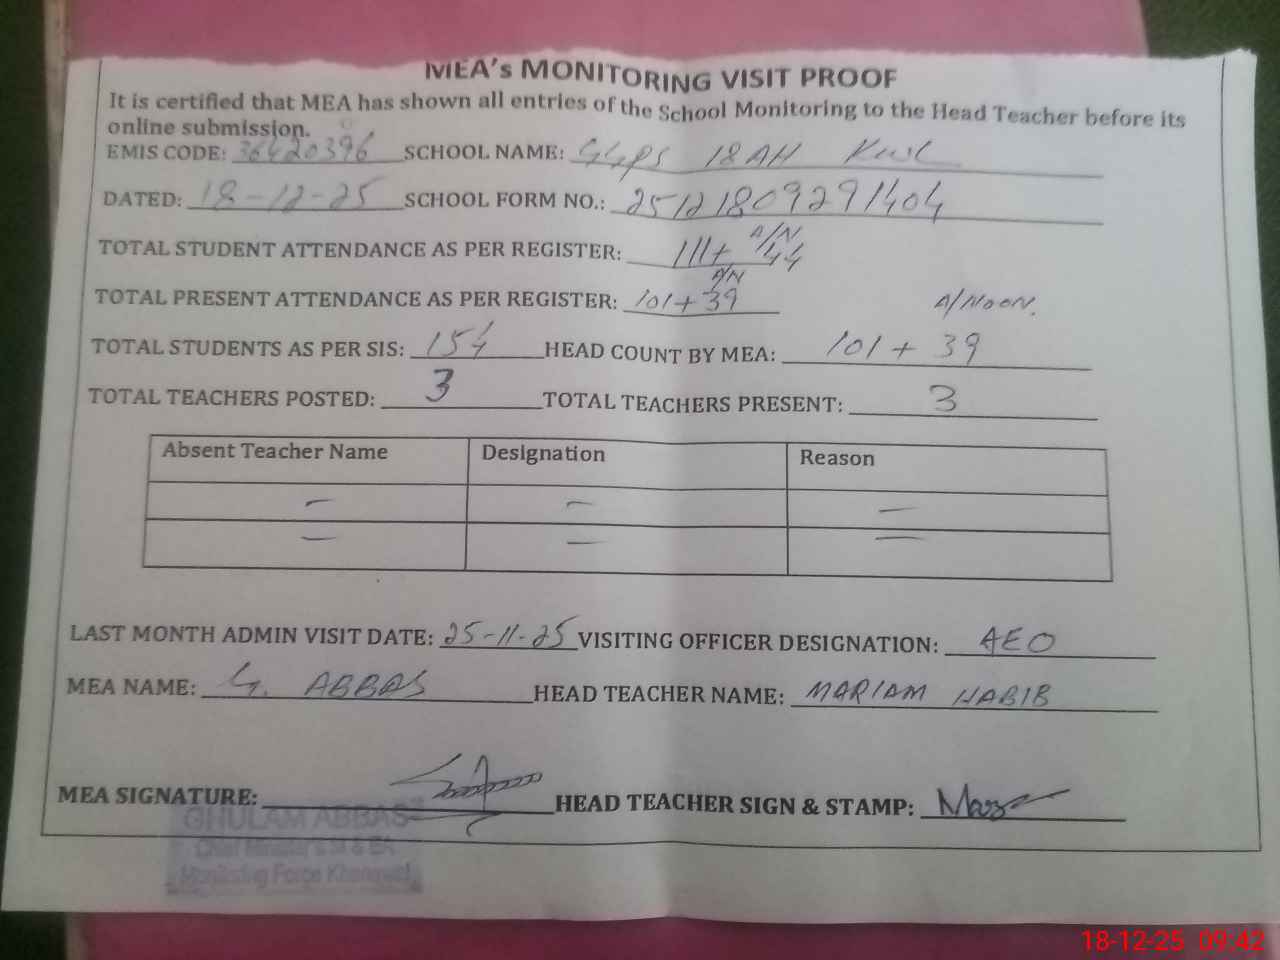 MEA's MONITORING VISIT PROOF
It is certified that MEA has shown all entries of the School Monitoring to the Head Teacher before its
online submission.
EMIS CODE: 36420396 SCHOOL NAME: GGPS 18AH KWL
DATED: 18-12-25 SCHOOL FORM NO.: 25121809291404
A/N
TOTAL STUDENT ATTENDANCE AS PER REGISTER: 111+44
A/N
TOTAL PRESENT ATTENDANCE AS PER REGISTER: 101+39 A/NOON.
TOTAL STUDENTS AS PER SIS: 154 HEAD COUNT BY MEA: 101 + 39
TOTAL TEACHERS POSTED: 3 TOTAL TEACHERS PRESENT: 3
Absent Teacher Name Designation Reason
– – –
– – –
LAST MONTH ADMIN VISIT DATE: 25-11-25 VISITING OFFICER DESIGNATION: AEO
MEA NAME: G. ABBAS HEAD TEACHER NAME: MARIAM HABIB
MEA SIGNATURE: HEAD TEACHER SIGN & STAMP:
GHULAM ABBAS
Chief Minister's M & EA
Monitoring Force Khanewal
18-12-25 09:42